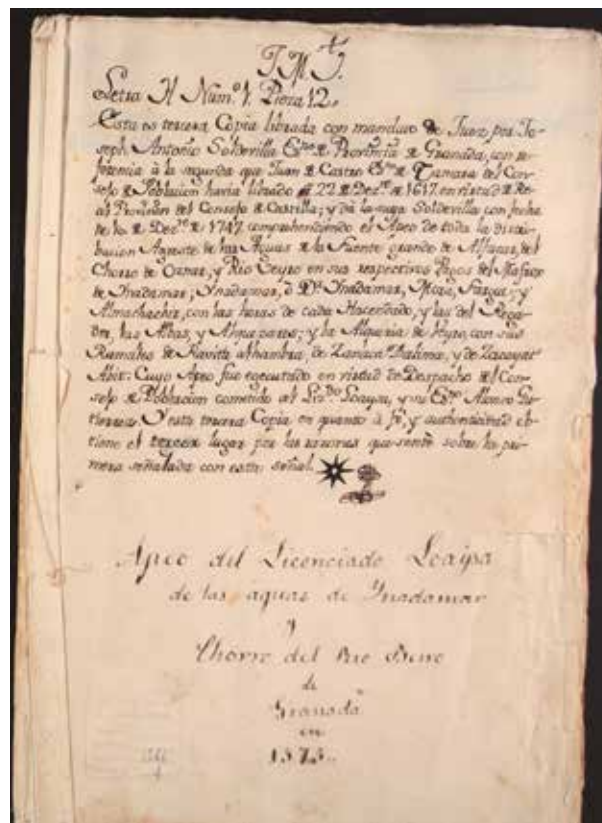 J. M. J.
Letra H Num.º 1. Pieza 12.
Esta es tercera Copia librada con mandato de Juez por Jo-
seph Antonio Soldevilla Esno de Provincia de Granada, con re-
ferencia à la segunda que Juan de Castro Esno de Camara del Con-
sejo de Poblacion havia librado à 22 de Dezre de 1617 en virtud de Re-
al Provision del Consejo de Castilla; y dà la suya Soldevilla con fecha
de de Dezre de 1747 comprehendiendo el Apeo de toda la distri-
bucion de las Aguas de la Fuente grande de Alfacar, del
Chorro de y Rio Beyro en sus respectivos Pagos del
de Ynadamar; Ynadamar, ò Ynadamar, Fargui, y
Almachachir, con las horas de cada Hacendado, y las del
las Albas, y y la Alqueria de con sus
Ramales de alhambra, de y de
Cuyo Apeo fue executado en virtud de Despacho del Con-
sejo de Poblacion cometido al Lizdo Loaysa, y su Esno Alonso Gu-
tierrez. Y esta tercera Copia en quanto à fé, y authenticidad ob-
tiene el tercer lugar por las razones que senté sobre la pri-
mera señalada con esta señal.
Apeo del Licenciado Loaysa
de las aguas de Ynadamar
y
Chorro del Rio Beiro
de
Granada
en
1575.